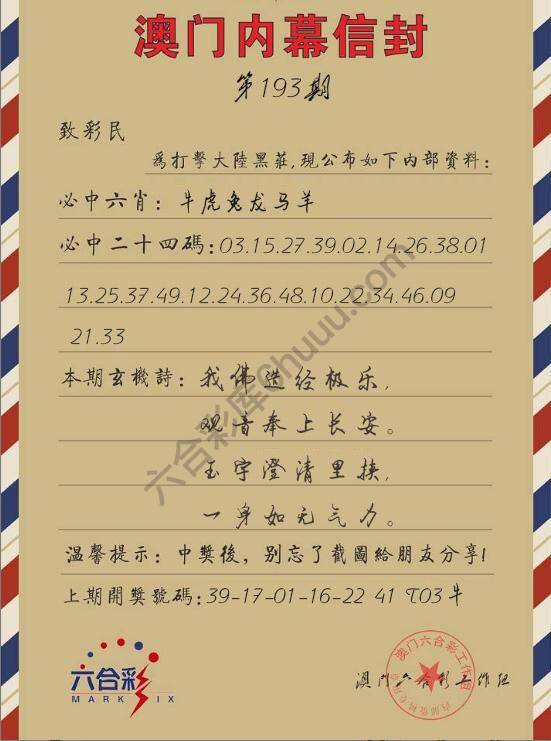 澳门内幕信封
第193期
致彩民
為打擊大陸黑莊,現公布如下内部資料:
必中六肖: 牛虎兔龙马羊
必中二十四碼:03.15.27.39.02.14.26.38.01
13.25.37.49.12.24.36.48.10.22.34.46.09
21.33
本期玄機詩: 我佛造经极乐,
观音奉上长安。
玉宇澄清里挟,
一身如无气力。
温馨提示: 中獎後, 别忘了截圖給朋友分享!
上期開獎號碼:39-17-01-16-22 41 T03牛
六合彩
MARK SIX
澳门六合彩工作组
澳门六合彩工作组
六合彩库@huuu.com